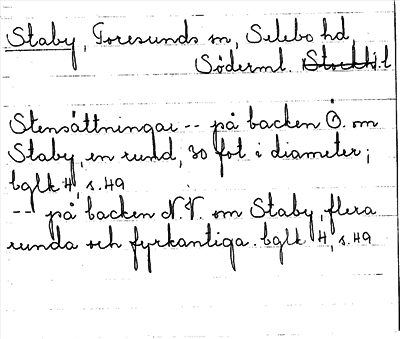 Staby, Toresunds sn, Selebo hd,
Söderml. Stockh. l
Stensättningar -- på backen Ö. om
Staby, en rund, 30 fot i diameter;
bglk 4, s. 49
-- på backen N.V. om Staby, flera
runda och fyrkantiga. bglk 4, s. 49